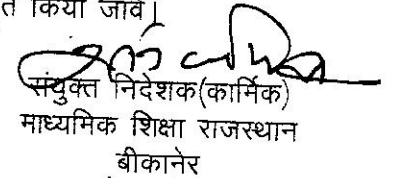 त किया जावे|
संयुक्त निदेशक(कार्मिक)
माध्यमिक शिक्षा राजस्थान
बीकानेर